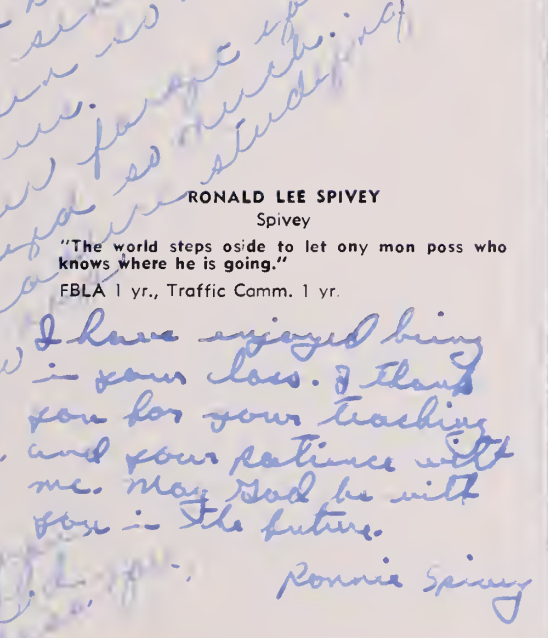 me.
forget
so much.
studying
RONALD LEE SPIVEY
Spivey
"The world steps aside to let any man pass who
knows where he is going."
FBLA 1 yr., Traffic Comm. 1 yr.
I have enjoyed being
in your class. I thank
you for your teaching
and your patience with
me. May God be with
you in the future.
you.
Ronnie Spivey